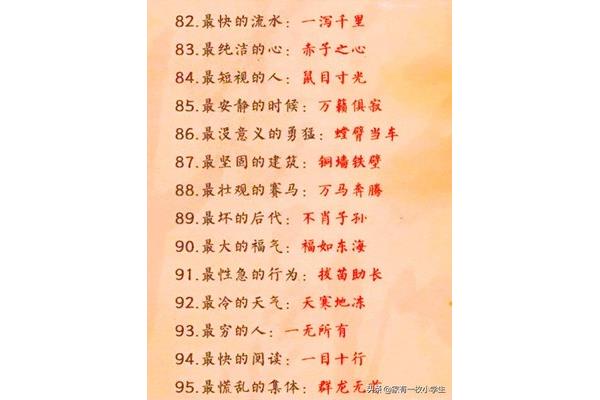 82.最快的流水：一泻千里
83.最纯洁的心：赤子之心
84.最短视的人：鼠目寸光
85.最安静的时候：万籁俱寂
86.最没意义的勇猛：螳臂当车
87.最坚固的建筑：铜墙铁壁
88.最壮观的赛马：万马奔腾
89.最坏的后代：不肖子孙
90.最大的福气：福如东海
91.最性急的行为：拔苗助长
92.最冷的天气：天寒地冻
93.最穷的人：一无所有
94.最快的阅读：一目十行
95.最慌乱的集体：群龙无首
头条 @家有一枚小学生